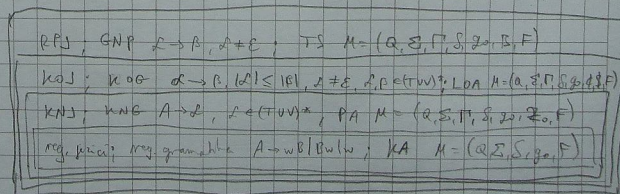 RPJ; GNP α→β, α≠ε; TS M=(Q,Σ,Γ,δ,q₀,B,F)
KOJ; KOG α→β, |α|≤|β|, α≠ε, α,β∈(TUV)*; LOA M=(Q,Σ,Γ,δ,q₀,¢,$,F)
KNJ; KNG A→α, α∈(TUV)*, PA M=(Q,Σ,Γ,δ,q₀,Z₀,F)
reg. jezici; reg. gramatike A→wB|Bw|w; KA M=(Q,Σ,δ,q₀,F)